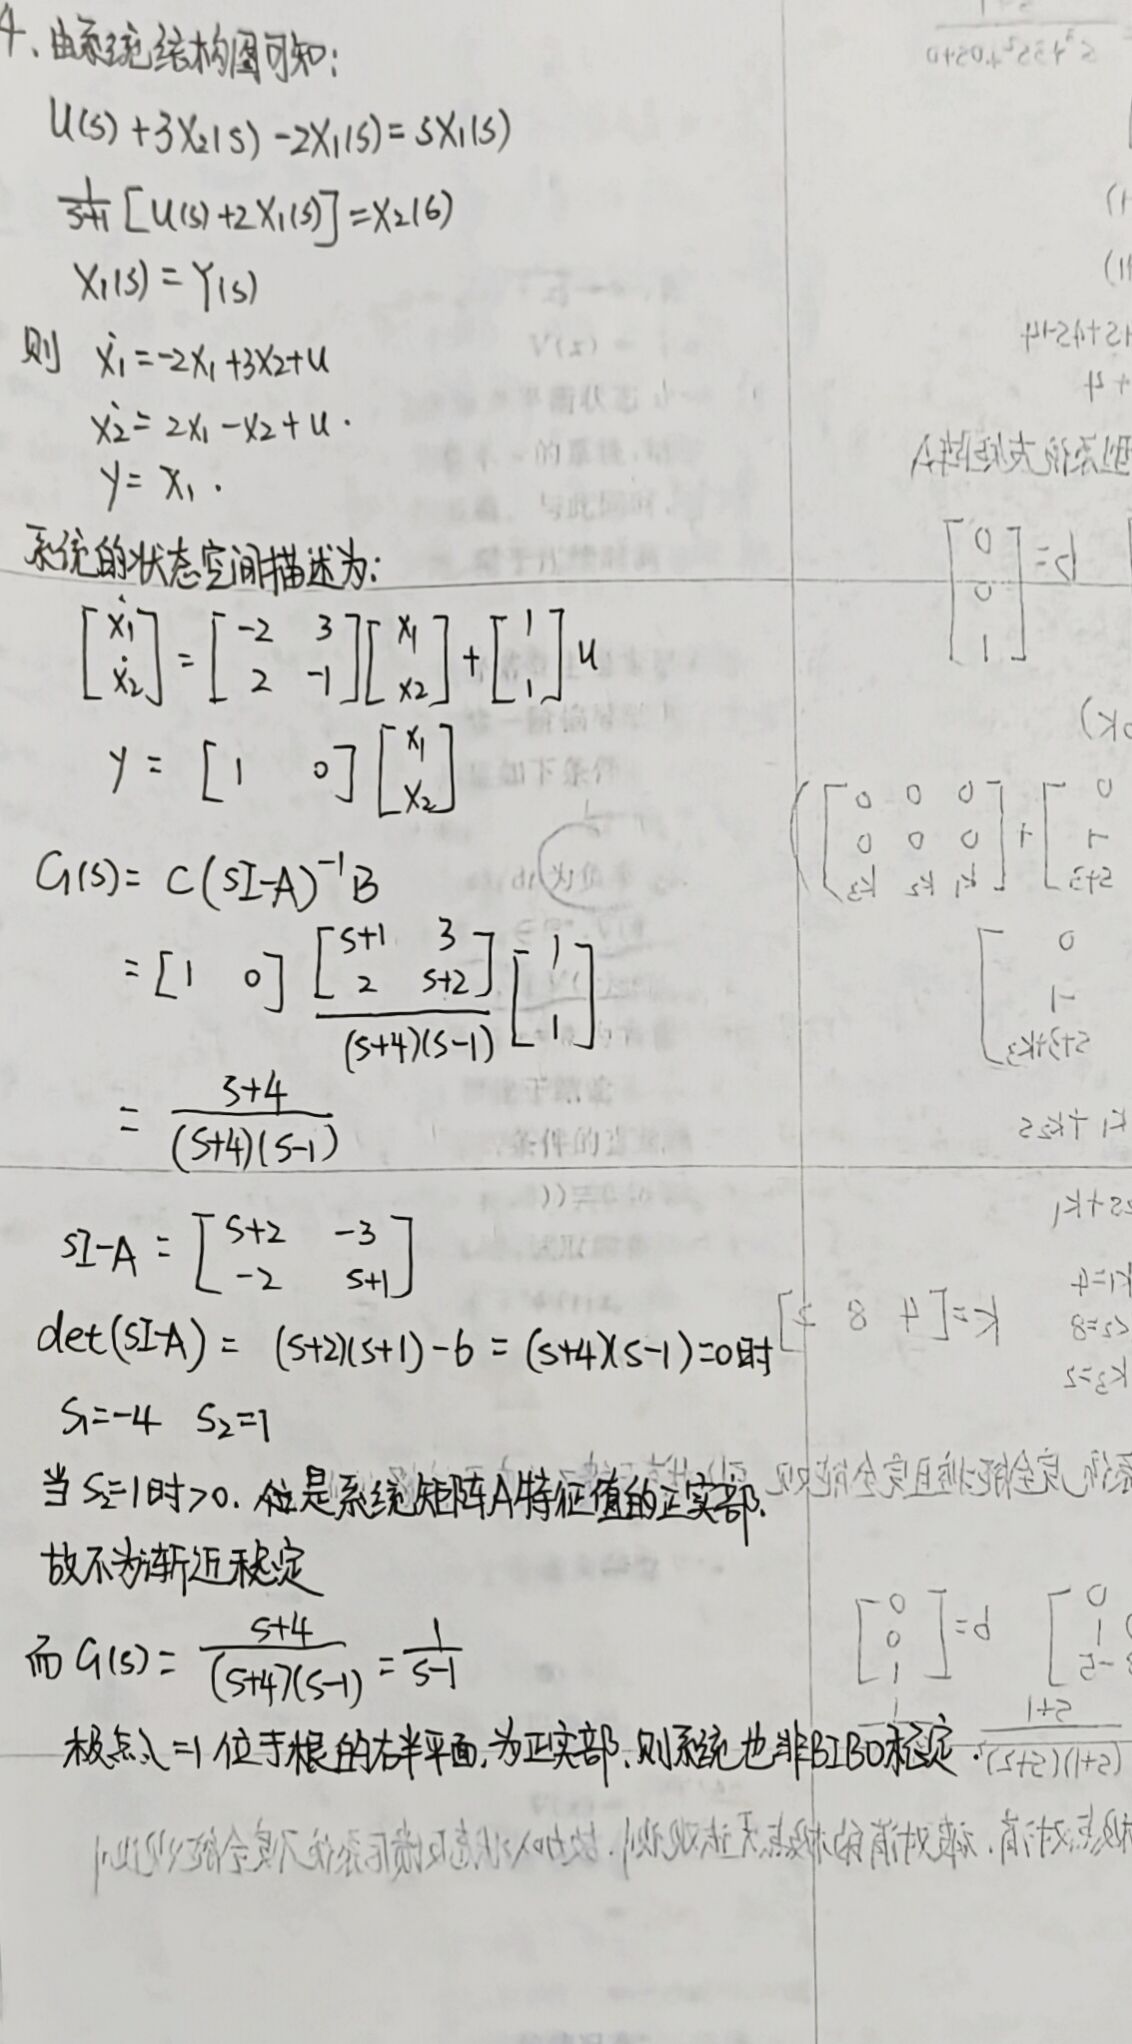 4、由系统结构图可知:
U(s)+3X₂(s)-2X₁(s)=sX₁(s)
1/(s+1) [U(s)+2X₁(s)]=X₂(s)
X₁(s)=Y(s)
则 ẋ₁=-2x₁+3x₂+u
ẋ₂=2x₁-x₂+u.
y=x₁.
系统的状态空间描述为:
[ẋ₁; ẋ₂] = [-2 3; 2 -1][x₁; x₂] + [1; 1]u
y = [1 0][x₁; x₂]
G(s)=C(sI-A)⁻¹B
=[1 0] [s+1 3; 2 s+2]/((s+4)(s-1)) [1; 1]
= (s+4)/((s+4)(s-1))
sI-A = [s+2 -3; -2 s+1]
det(sI-A) = (s+2)(s+1)-6 = (s+4)(s-1)=0时
S₁=-4 S₂=1
当S₂=1时>0. 是系统矩阵A特征值的正实部.
故不为渐近稳定
而G(s)= (s+4)/((s+4)(s-1)) = 1/(s-1)
极点λ=1位于根的右半平面,为正实部,则系统也非BIBO稳定.